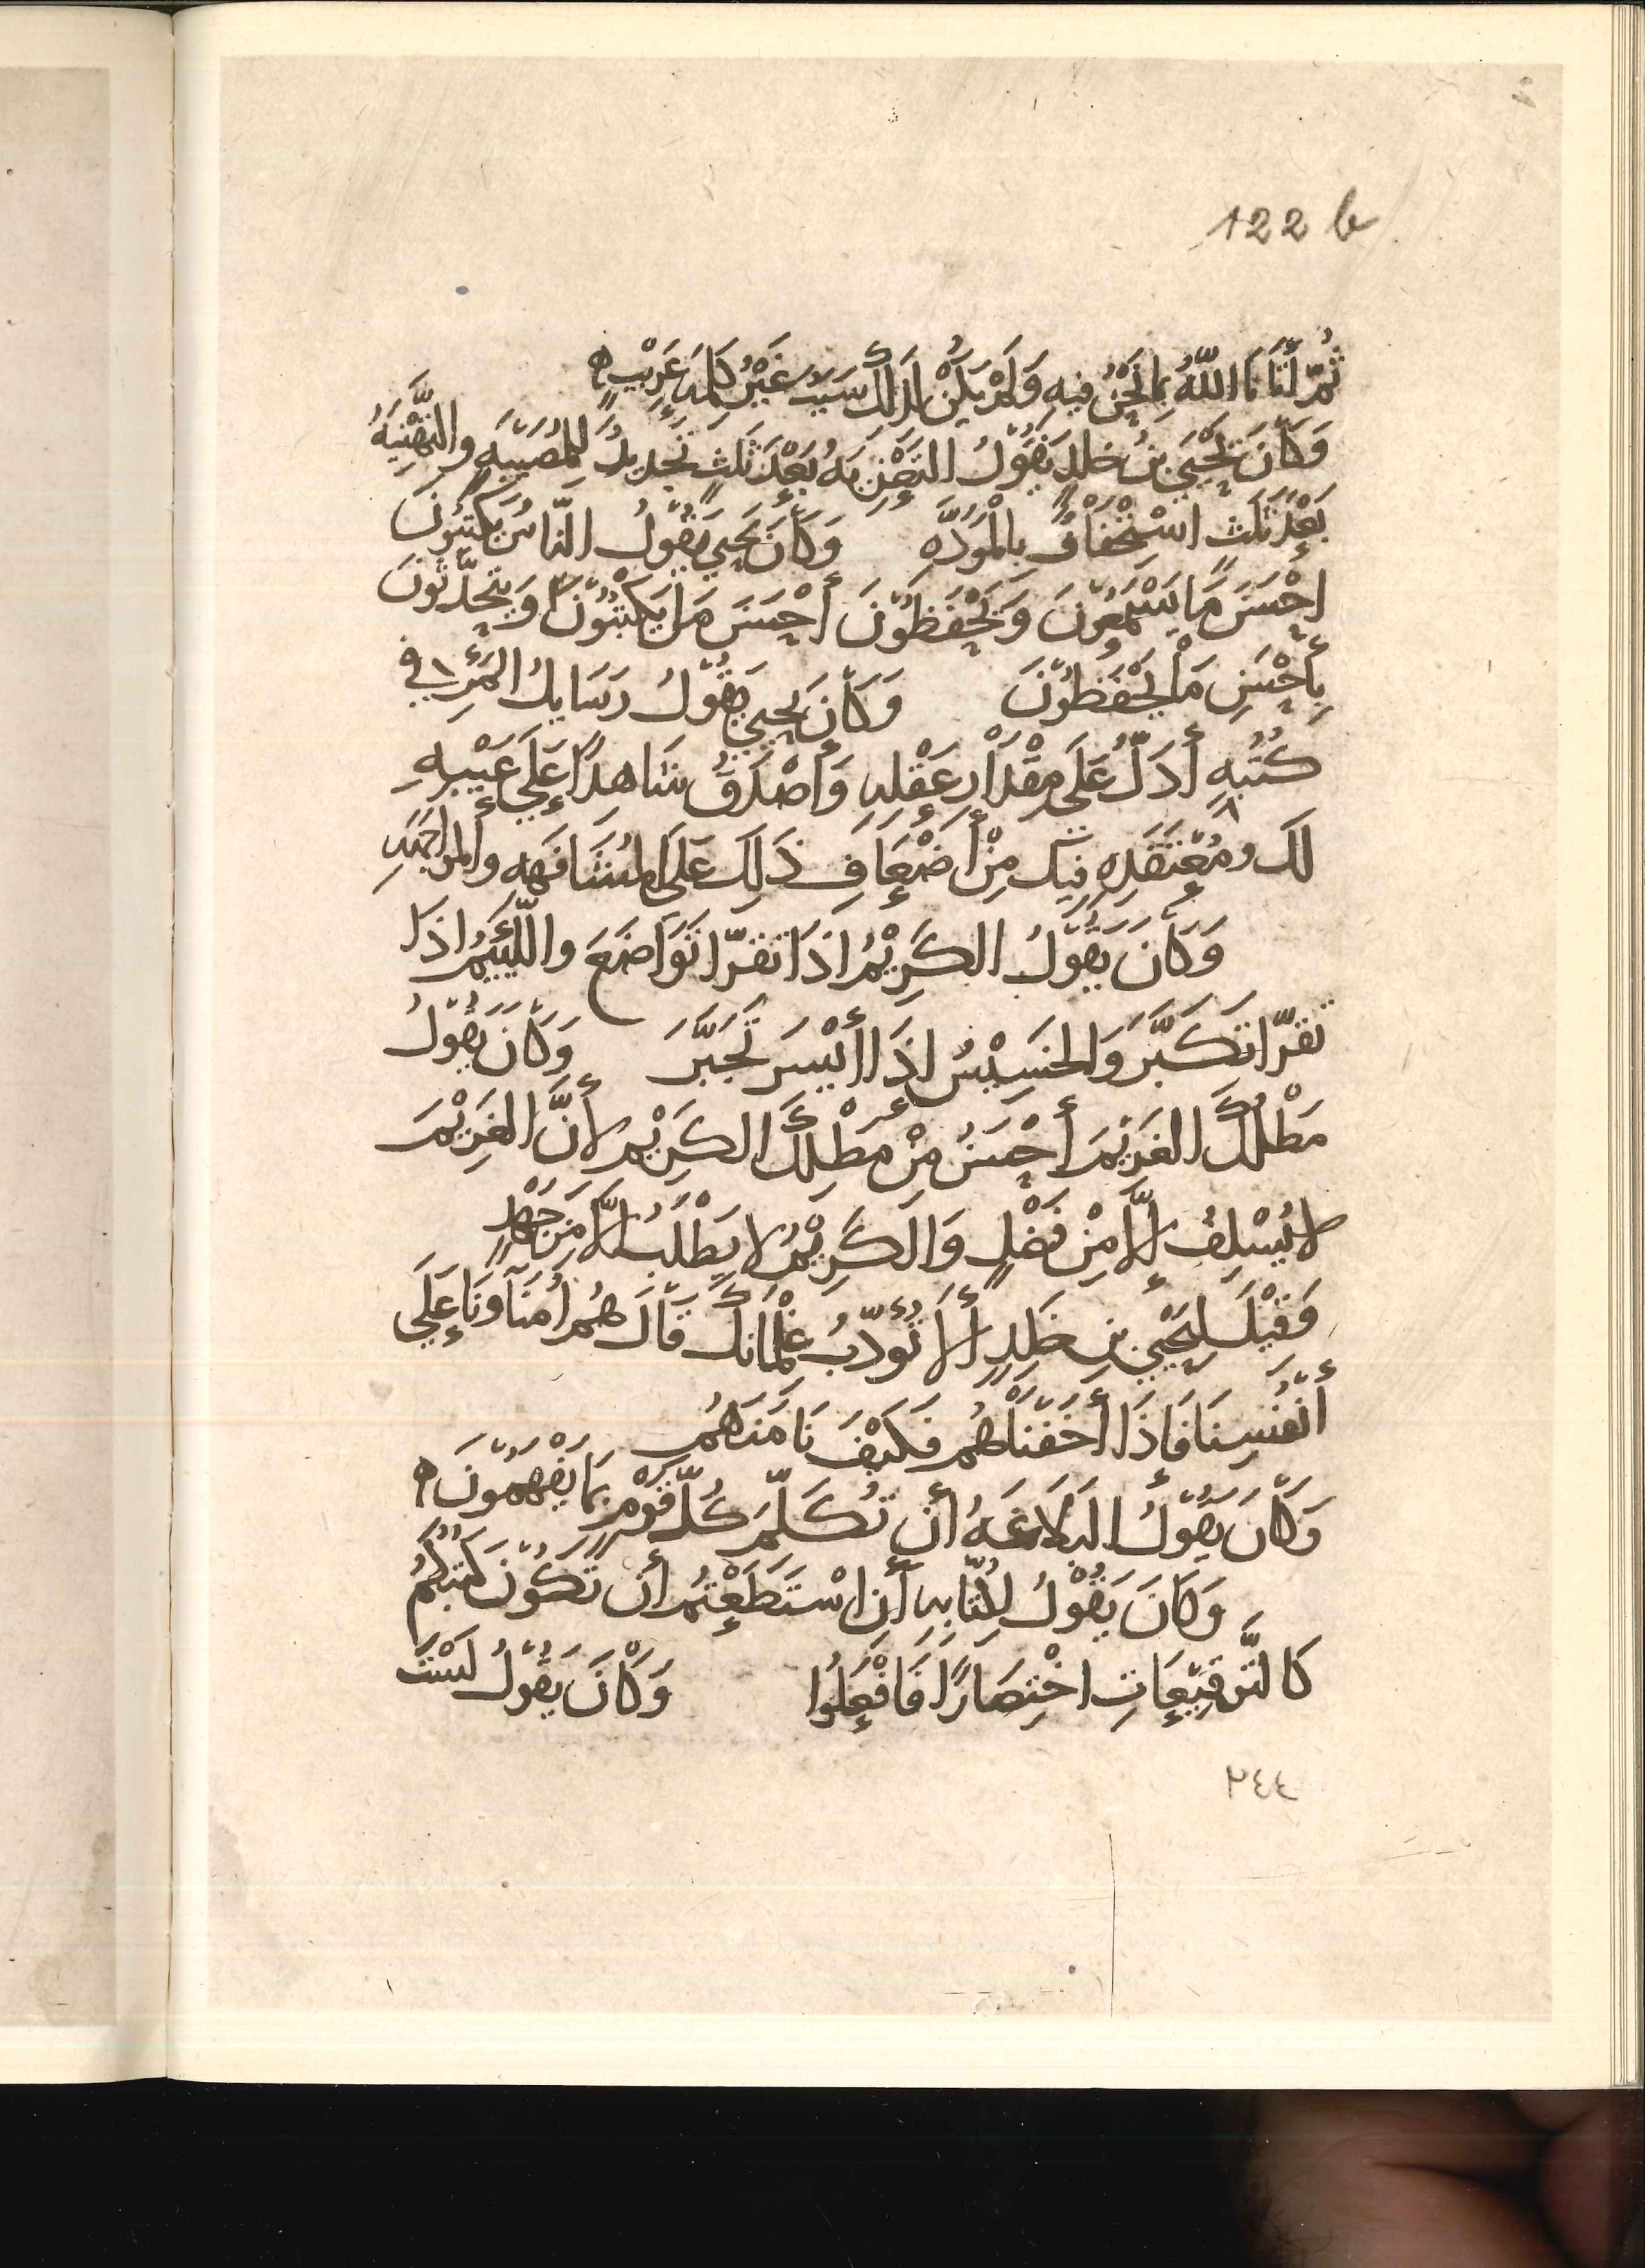 122 b
ثُمّ أَتَانَا اللّهُ بِمَا نَحْنُ فِيهِ وَلَمْ يَكُنْ لِذَلِكَ سَبَبٌ غَيْرُ كَلِمَةِ غَرِيْبٍ
وَكَانَ يَحْيَى بنُ خٰلِدٍ يَقُوْلُ التَعْزِيَهُ بَعْدَ ثَلٰثٍ تَجْدِيدٌ لِلمُصِيْبَهِ والتَهْنِيَهُ
بَعْدَ ثَلٰثٍ اسْتِخْفَافٌ بِالْمَوَدَّهِ وَكَانَ يَحيَى يَقُوْلُ النّاسُ يَكْتبُوْنَ
احْسَنَ مَا يَسْمَعُوْنَ وَيَحْفَظُوْنَ أَحْسَنَ مَا يَكْتبُوْنَ وَيَتَحَدَّثُونَ
بِأَحْسَنِ مَا يَحْفَظُوْنَ وَكَانَ يَحيَى يَقُوْلُ رَسَايِلُ المَرْءِ في
كُتُبِهِ أَدَلُّ عَلَى مِقْدَارِ عَقْلِهِ وَأَصْدَقُ شَاهِدًا عَلَى غَيْبِهِ
لَكَ ومُعْتَقَدِهِ فِيكَ مِنْ أَضْعَافِ ذَلِكَ عَلَى المُشَافَهَهِ والمُوَاجَهَهِ
وَكَانَ يَقُوْلُ الكَرِيْمُ اذَا تَقَرّا تَوَاضَعَ واللَّئِيمُ اذَا
تَقَرّا تَكَبَّرَ وَالخَسِيْسُ اذَا أَيْسَرَ تَجَبَّرَ وَكَانَ يَقُوْلُ
مَطْلُكَ الغَرِيْمَ أَحْسَنُ مِنْ مَطْلِكَ الكَرِيْمَ لأَنَّ الغَرِيْمَ
لا يُسْلِفُ إلّا مِنْ فَضْلٍ وَالكَرِيْمُ لا يَطْلُبُ الّا مِن جَهْدٍ
وَقِيْلَ لِيَحْيَى بنِ خٰلِدٍ أَلا تُؤَدِّبُ غِلْمَانَكَ قَالَ هُم أُمَنَاؤنَا عَلَى
أَنْفُسِنَا فَاذَا أَخَفْنَاهُم فَكَيْفَ نَامَنُهُم
وَكَانَ يَقُوْلُ البَلَاغَهُ أَن تُكَلِّمَ كُلّ قَوْمٍ بِمَا يَفْهَمُوْنَ
وَكَانَ يَقُوْلُ لِكُتّابِهِ أَنِ اسْتَطَعْتُم أَن تَكُوْنَ كُتُبُكُمُ
كَالتَّوقِيْعَاتِ اخْتِصَارًا فَافْعَلُوا وَكَانَ يَقُوْلُ لَسْتَ
٢٤٤